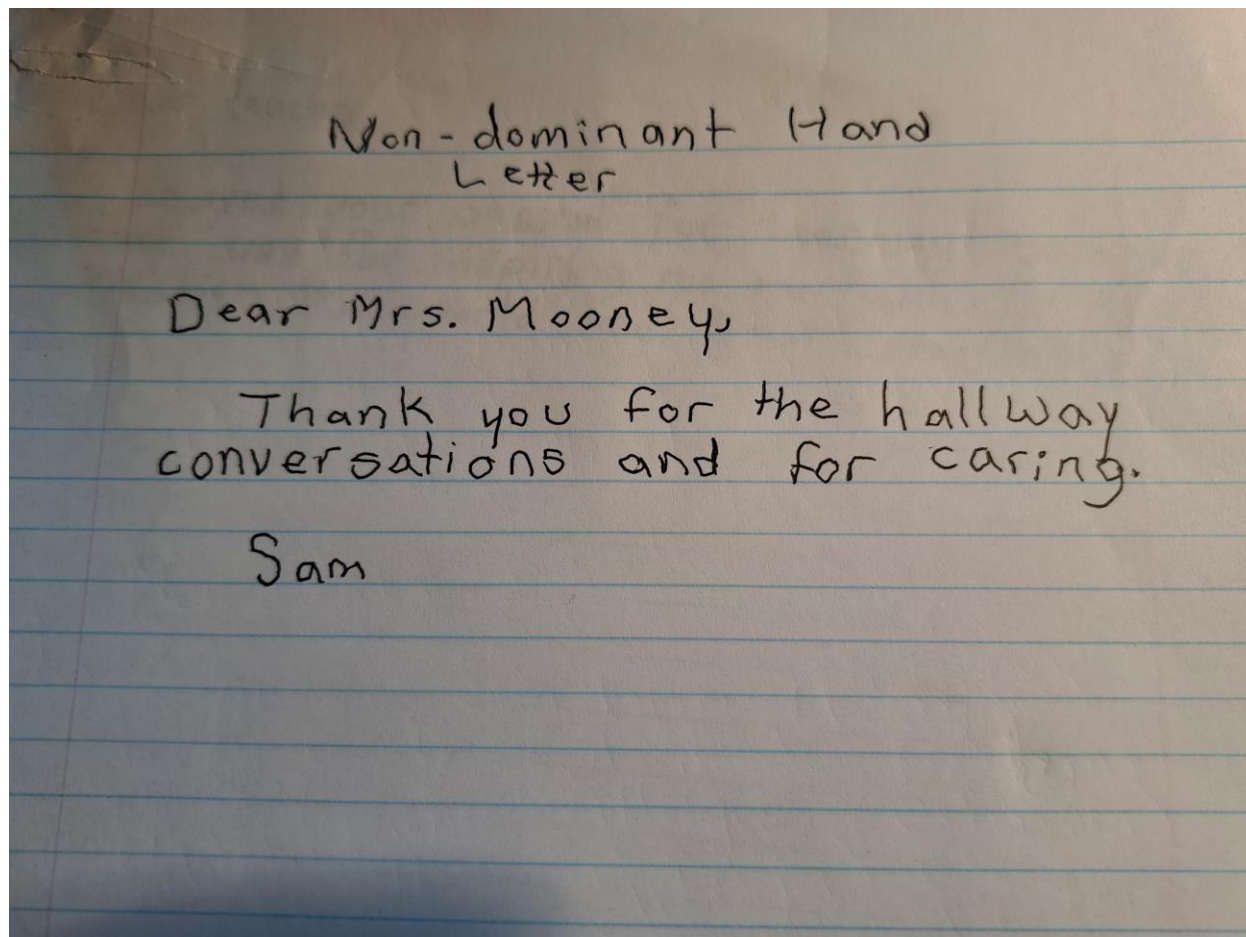 Non-dominant Hand
Letter
Dear Mrs. Mooney,
Thank you for the hallway
conversations and for caring.
Sam